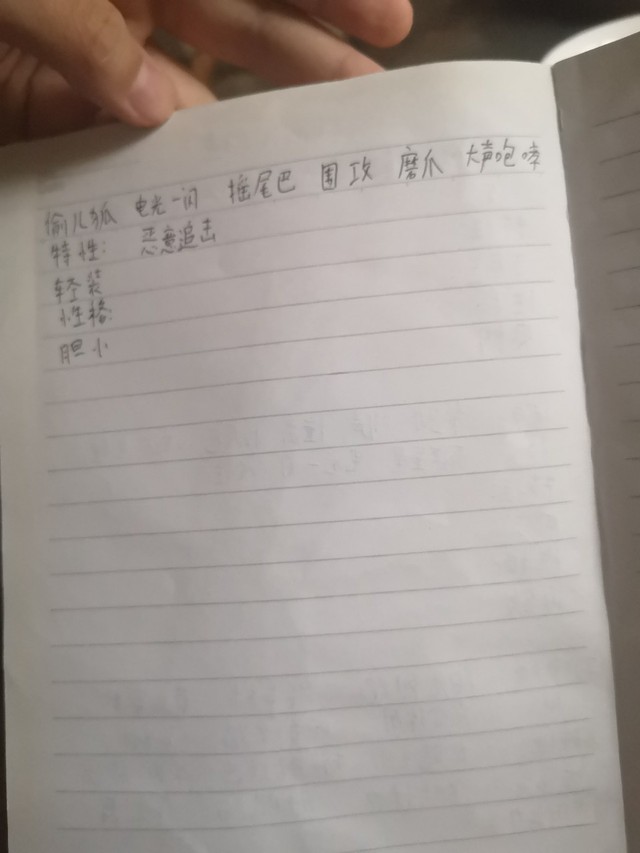 偷儿狐 电光一闪 摇尾巴 围攻 磨爪 大声咆哮
特性: 恶意追击
轻装
性格:
胆小